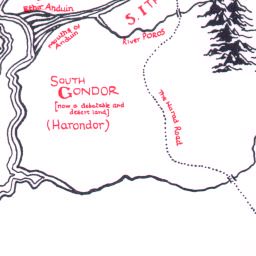 Ethir Anduin
mouths of
Anduin
S. ITH
River POROS
SOUTH
GONDOR
[now a debatable and
desert land]
(Harondor)
The Harad Road